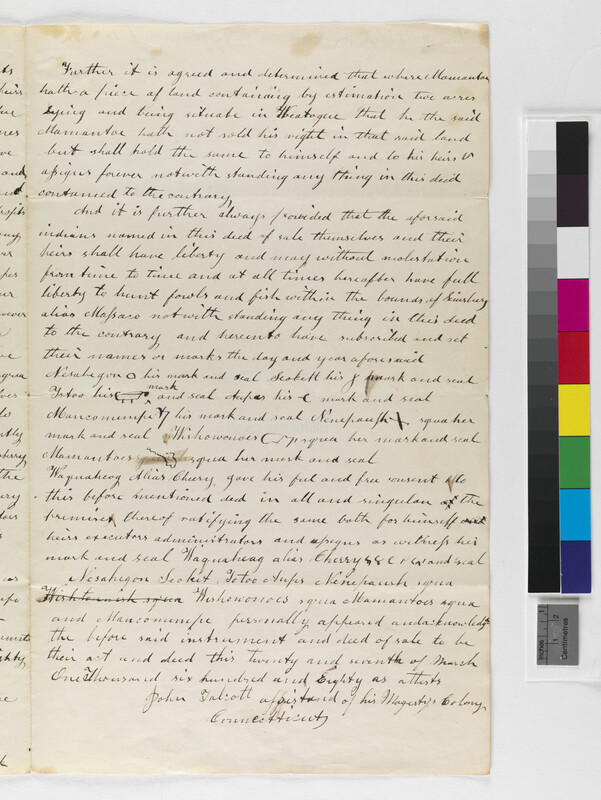 Further it is agreed and determined that where Mamantoe
hath a piece of land containing by estimation two acres
Lying and being situate in Weatogue that he the said
Mamantoe hath not sold his right in that said land
but shall hold the same to himself and to his heirs &
assigns forever notwith standing any thing in this deed
contained to the contrary,
And it is further always provided that the aforsaid
indians named in this deed of sale themselves and their
heirs shall have liberty and may without molestation
from time to time and at all times hereafter have full
liberty to hunt fowls and fish within the bounds of Simsbury
alias Massaco notwith standing any thing in this deed
to the contrary and hereunto have subscribed and set
their names or marks the day and year aforesaid
Nesahegon his mark and seal Seokett his mark and seal
Totoo his mark and seal Aups his mark and seal
Mancomunipe his mark and seal Nenepaush squa her
mark and seal Wishowonoes squa her mark and seal
Mamantoes squa her mark and seal
Waquaheag Alias Cherry, gave his ful and free consent to
this before mentioned deed in all and singular the
premises thereof ratifying the same both for himself and
heirs executors administrators and assigns as witness his
mark and seal Waquaheag alias Cherry and seal
Nesahegon Seoket Totoo Aups Nenepaush squa
Wishowonoes squa Mamantoes squa
and Mancomunipe personally appeared and acknowledg
the before said instrument and deed of sale to be
their act and deed this twenty and of Marsh
One Thousand six hundred and Eighty as attests
John Talcott assistand of his Magestys Colony
Connetticut